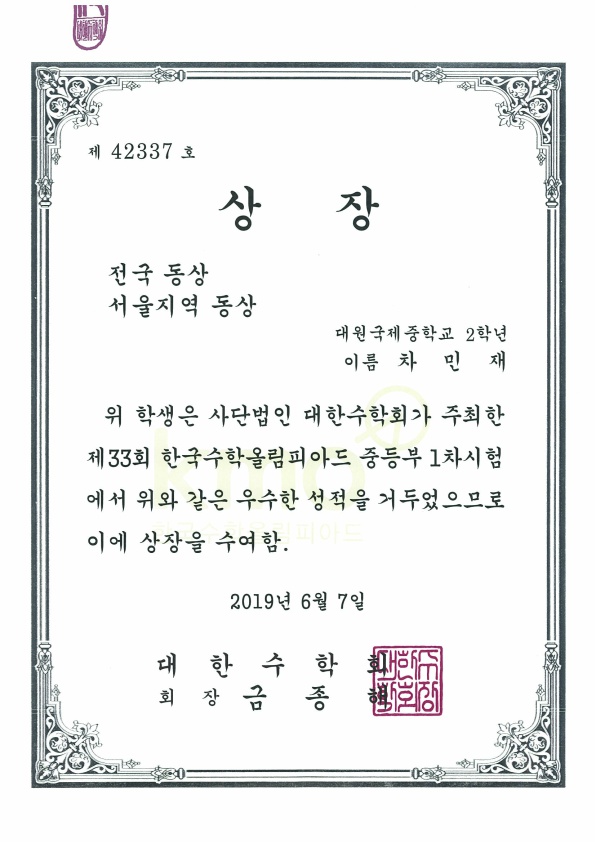 제 42337 호
상 장
전국 동상
서울지역 동상
대원국제중학교 2학년
이름 차 민 재
위 학생은 사단법인 대한수학회가 주최한
제33회 한국수학올림피아드 중등부 1차시험
에서 위와 같은 우수한 성적을 거두었으므로
이에 상장을 수여함.
kmo
한국수학올림피아드
2019년 6월 7일
대 한 수 학 회
회 장 금 종 해